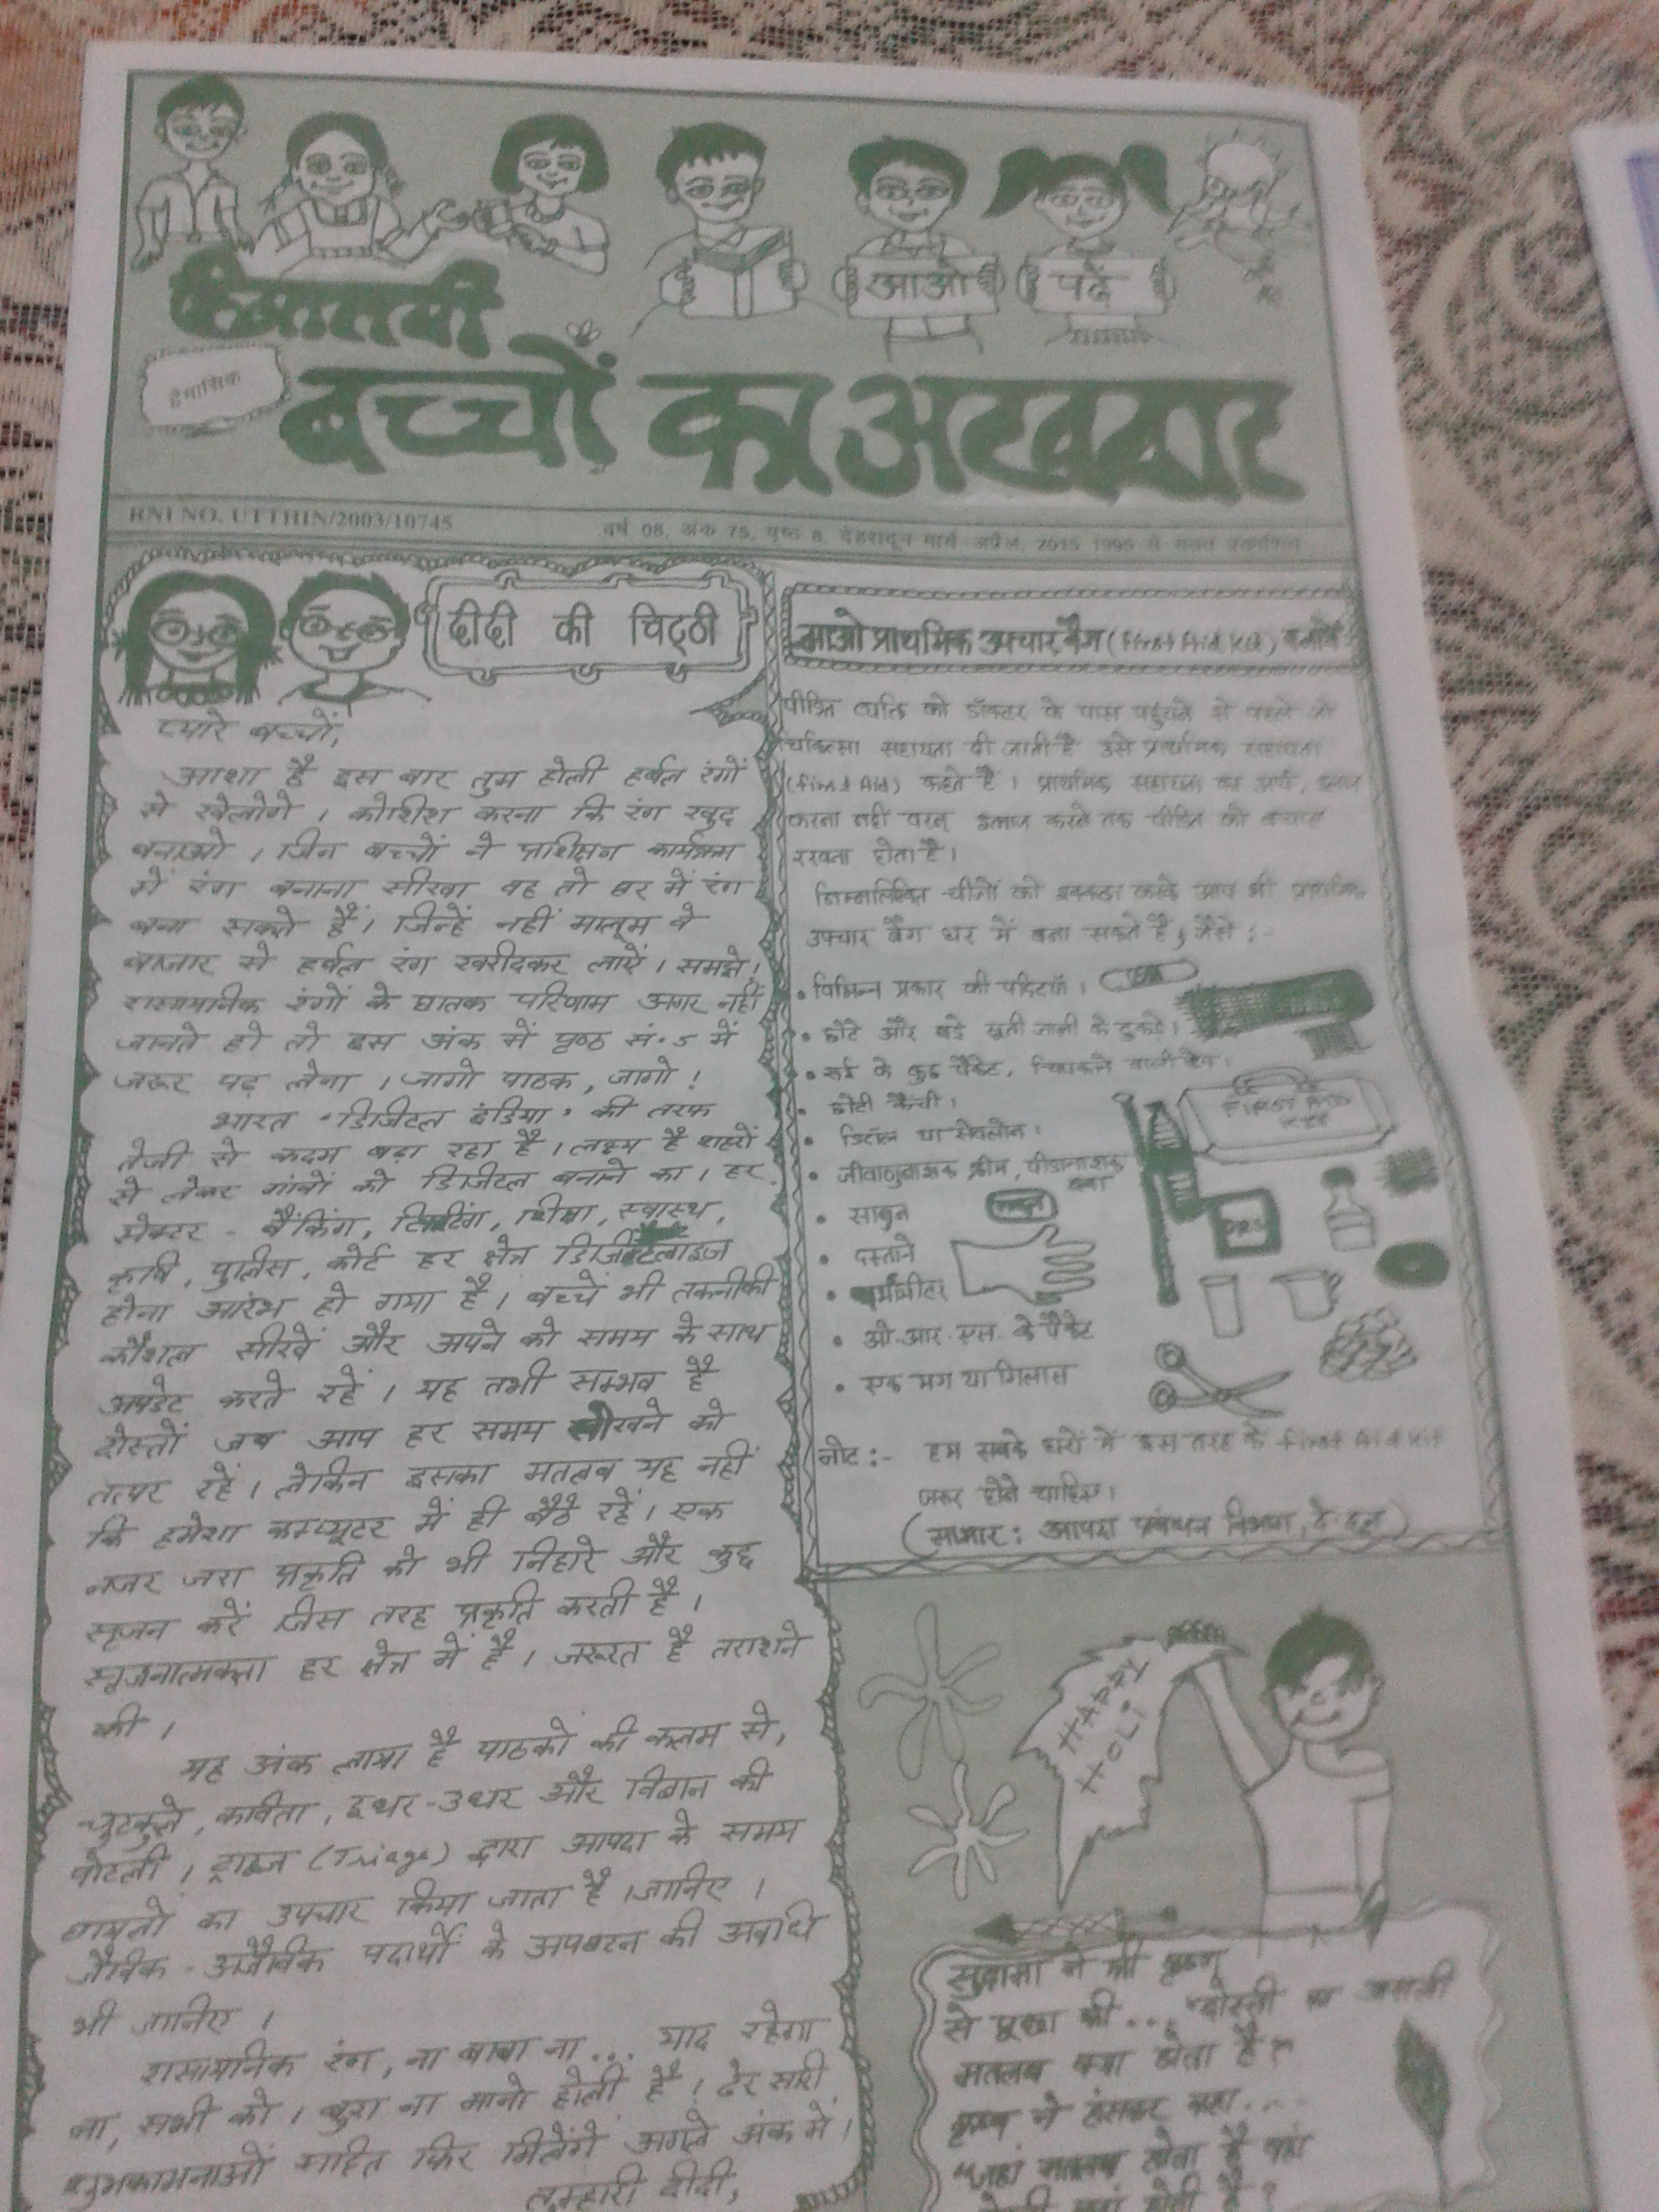 आओ पढ़ें
द्वैमासिक
बच्चों का अखबार
RNI NO. UTTHIN/2003/10745
वर्ष 08, अंक 75, पृष्ठ 8, देहरादून मार्च अप्रैल, 2015 1996 से सतत प्रकाशित
दीदी की चिट्ठी
प्यारे बच्चों,
आशा है इस बार तुम होली हर्बल रंगों
से खेलोगे । कोशिश करना कि रंग खुद
बनाओ । जिन बच्चों ने प्रशिक्षण कार्यक्रम
में रंग बनाना सीखा वह तो घर में रंग
बना सकते हैं। जिन्हें नहीं मालूम वे
बाजार से हर्बल रंग खरीदकर लाऐं । समझे!
रासायनिक रंगों के घातक परिणाम अगर नहीं
जानते हो तो इस अंक में पृष्ठ सं. 5 में
जरूर पढ़ लेना । जागो पाठक, जागो !
भारत 'डिजिटल इंडिया' की तरफ
तेजी से कदम बढ़ा रहा है । लक्ष्य है शहरों
से लेकर गांवों को डिजिटल बनाने का । हर
सेक्टर - बैंकिंग, शिक्षा, स्वास्थ,
कृषि, पुलिस, कोर्ट हर क्षेत्र डिजिटलाइज
होना आरंभ हो गया है । बच्चें भी तकनीकी
कौशल सीखें और अपने को समय के साथ
अपडेट करते रहें । यह तभी सम्भव है
दोस्तों जब आप हर समय सीखने को
तत्पर रहें । लेकिन इसका मतलब यह नहीं
कि हमेशा कम्प्यूटर में ही बैठे रहें । एक
नजर जरा प्रकृति को भी निहारे और कुछ
सृजन करें जिस तरह प्रकृति करती है ।
सृजनात्मकता हर क्षेत्र में है । जरूरत है तराशने
की ।
यह अंक लाया है पाठकों की कलम से,
चुटकुले, कविता, इधर-उधर और विज्ञान की
पोटली । ट्राइज (Triage) द्वारा आपदा के समय
घायलों का उपचार किया जाता है । जानिए ।
जैविक - अजैविक पदार्थों के अपघटन की अवधि
भी जानिए ।
रासायनिक रंग, ना बाबा ना ... याद रहेगा
ना, सभी को । बुरा ना मानो होली है ! ढेर सारी
शुभकामनाओं सहित फिर मिलेंगे अगले अंक में ।
तुम्हारी दीदी,
आओ प्राथमिक उपचार बैग (First Aid Kit) बनायें
पीड़ित व्यक्ति को डॉक्टर के पास पहुंचने से पहले जो
चिकित्सा सहायता दी जाती है उसे प्राथमिक सहायता
(First Aid) कहते है । प्राथमिक सहायता का अर्थ, इलाज
करना नहीं वरन् इलाज करने तक पीड़ित को बचाए
रखना होता है ।
निम्नलिखित चीजों को इकट्ठा करके आप भी प्राथमिक
उपचार बैग घर में बना सकते है, जैसे :-
• विभिन्न प्रकार की पट्टियाँ ।
• छोटे और बड़े सूती जाली के टुकडे ।
• रूई के कुछ पैकेट, चिपकने वाली टेप ।
• छोटी कैंची ।
• डिटॉल या सेवलोन ।
• जीवाणुनाशक क्रीम, पीडानाशक दवा
• साबुन
• दस्ताने
• थर्मामीटर
• ओ.आर.एस. के पैकेट
• एक मग या गिलास
FIRST AID KIT
साबुन
ORS
नोट :- हम सबके घरों में इस तरह के First Aid Kit
जरूर होने चाहिए ।
(साभार : आपदा प्रबंधन विभाग, दे.दून)
HAPPY HOLI
सुदामा ने श्री कृष्ण
से पूछा की ... "दोस्ती का असली
मतलब क्या होता है?"
कृष्ण ने हंसकर कहा ...
"जहां मतलब होता है वहां
दोस्ती कहां होती है ?